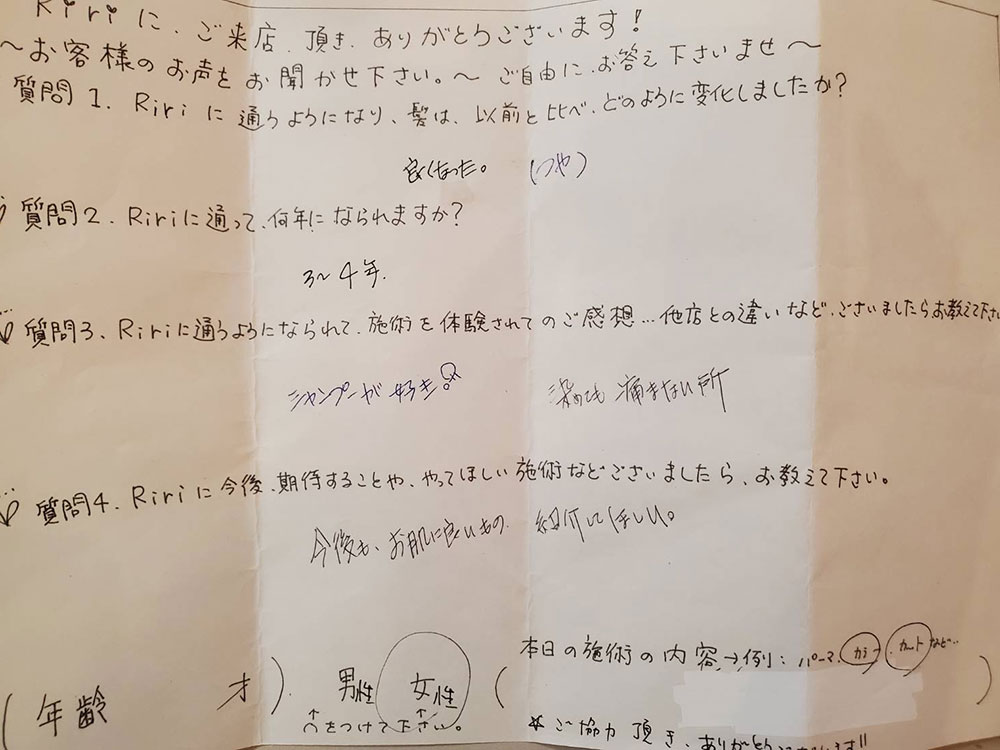 Ririに、ご来店、頂き、ありがとうございます!
〜お客様のお声をお聞かせ下さい。〜ご自由に、お答え下さいませ〜
質問1. Ririに通うようになり、髪は、以前と比べ、どのように変化しましたか?
良くなった。 (つや)
質問2. Ririに通って、何年になられますか?
3〜4年.
質問3、Ririに通うようになられて、施術を体験されてのご感想…他店との違いなど、ございましたらお教え下さい
シャンプーが好き
染めても痛まない所
質問4. Ririに今後、期待することや、やってほしい施術などございましたら、お教えて下さい。
今後も、お肌に良いもの 紹介してほしい。
本日の施術の内容→例:パーマ、カラー、カットなど…
(年齢 才) 男性 女性 ( )
↑ ↑
○をつけて下さい。
☆ご協力頂き、ありがとうございます!!